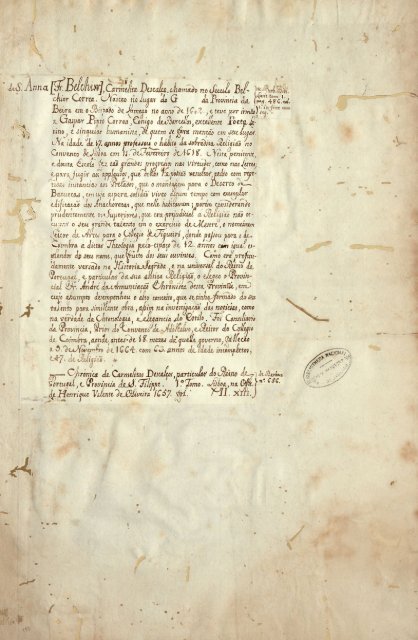 de S. Anna [Fr. Belchior], Carmelita Descalço, chamado no Seculo Bel-
chior Correa. Nasceo no lugar do G da Provincia da
Beira em o Bispado de no anno de 1602, e teve por irmão
a Gaspar Pinto Correa, Conigo de Barcellos, excelente Poeta La-
tino, e singular humanista, de quem se fará menção em seu lugar.
Na idade de 17. annos professou o habito da sobredita Religião no
Convento de Lisboa em 14. de Fevereiro de 1618. Nesta penitente,
e douta Escola fez tão grandes progressos nas virtudes, como nas letras,
e para fugir ao applauso, que destas lhe podia resultar, pedio com rep-
tidas instancias aos Prelados, que o mandassem para o Deserto de
Bussaco, em cuja aspera solidão viveo algum tempo com exemplar
edificação dos Anachoretas, que nelle habitavam; porém considerando
prudentemente os Superiores, que era prejudicial á Religião não oc-
cupar o seu grande talento em o exercicio de Mestre, o nomearam
Leitor de Artes para o Collegio de Figueiró, donde passou para o de
Coimbra a dictar Theologia pelo espaço de 12. annos com igual es-
plendor do seu nome, que fructo dos seus ouvintes. Como era profun-
damente versado na Historia Sagrada, e na universal do Reino de
Portugal, e particular da sua austera Religião, o elegeo o Provin-
cial Fr. André da Annunciação Chronista desta Provincia, em
cujo assumpto desempenhou o alto conceito, que se tinha formado do seu
talento para similhante obra, assim na investigação das noticias, como
na verdade da Chronologia, e elegancia do Estilo. Foi Consiliario
da Provincia, Prior do Convento de e Reitor do Collegio
de Coimbra, aonde antes de 18. mezes de governo, falleceo
a 3. de Novembro de 1664. com 63. annos de idade incompletos,
e 47. de Religião.
Chronica de Carmelitas Descalços, particular do Reino de
Portugal, e Provincia de S. Filippe. 1º Tomo. Lisboa, na Offic.
de Henrique Valente de Oliveira 1657. fol. XII. XIII.
de Barbosa
nº 686.